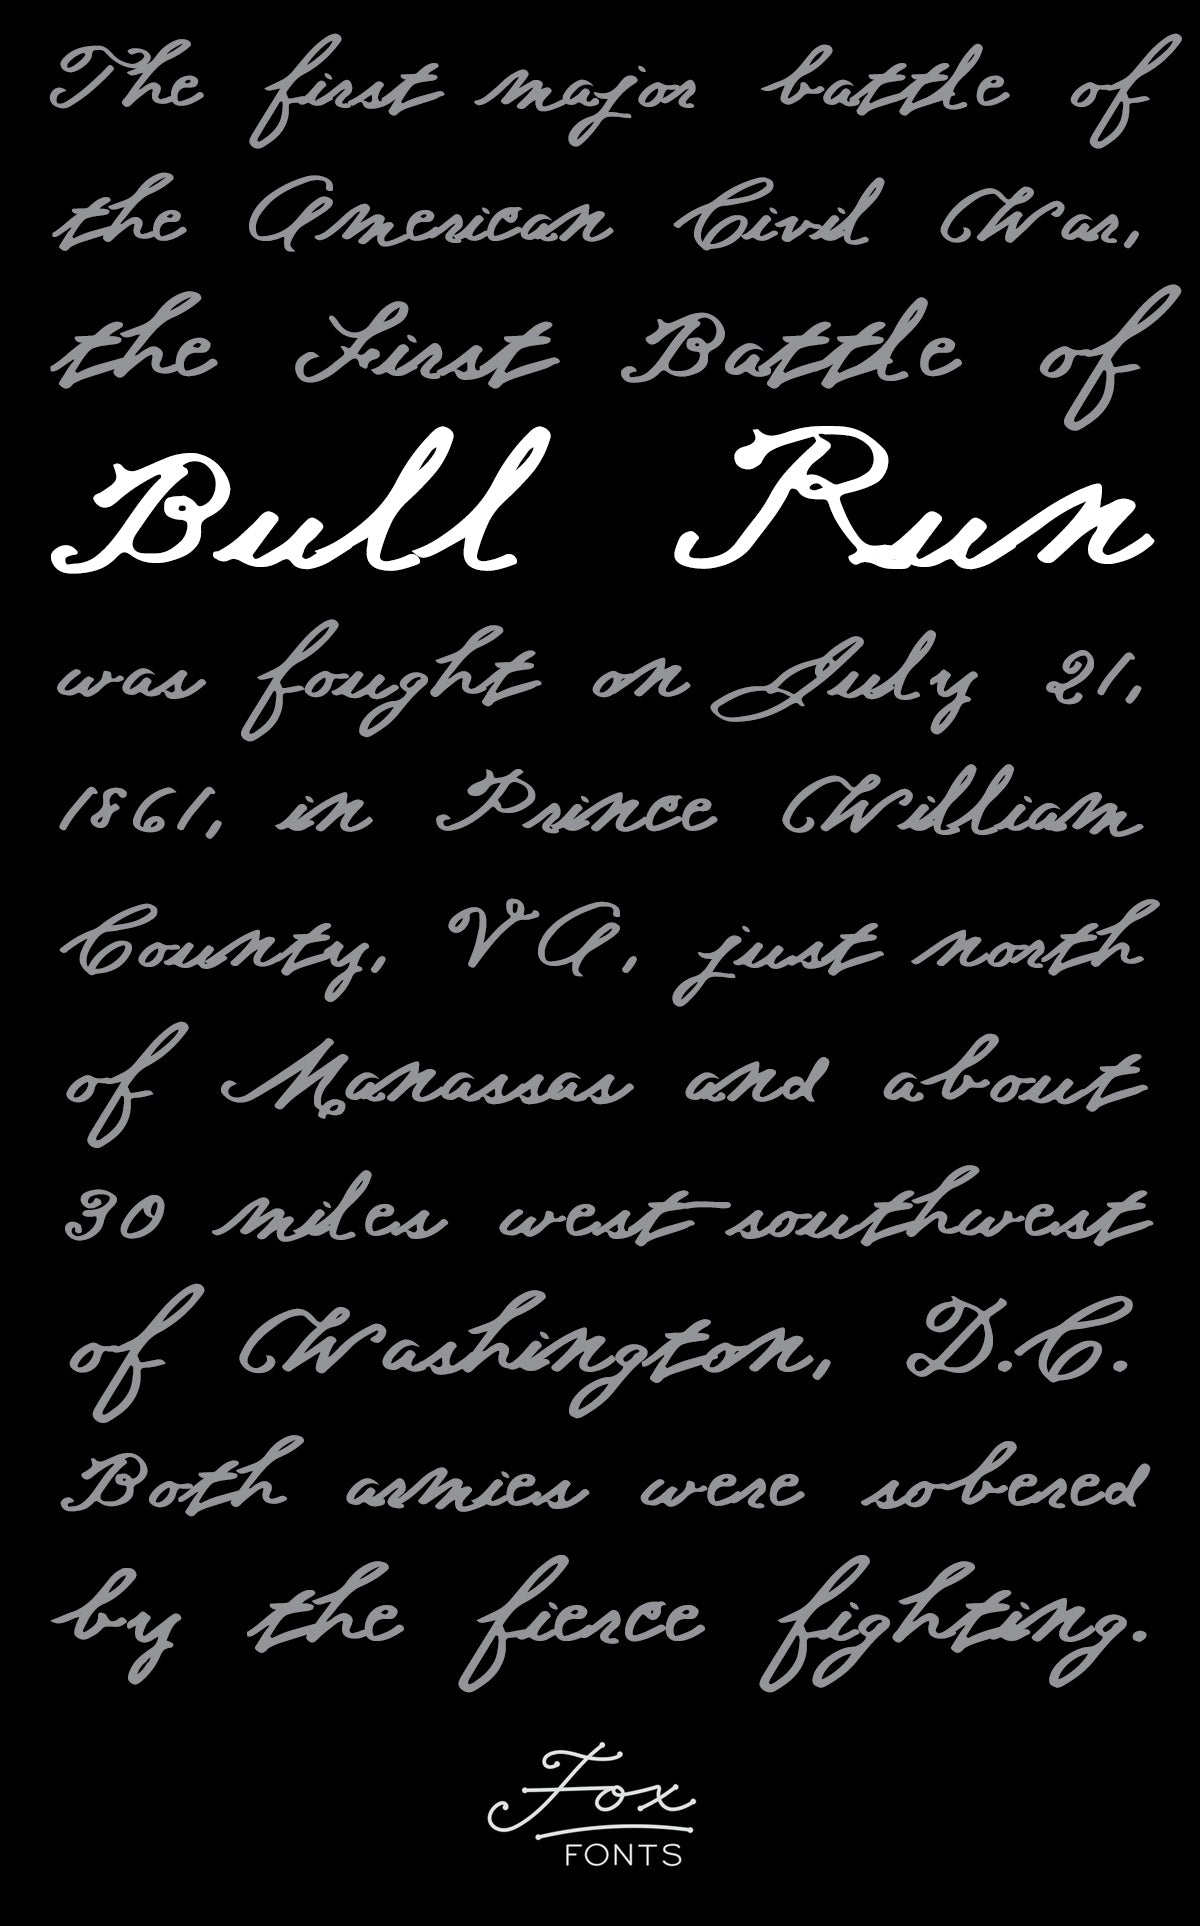 The first major battle of
the American Civil War,
the First Battle of
Bull Run
was fought on July 21,
1861, in Prince William
County, VA, just north
of Manassas and about
30 miles west-southwest
of Washington, D.C.
Both armies were sobered
by the fierce fighting.
Fox
FONTS